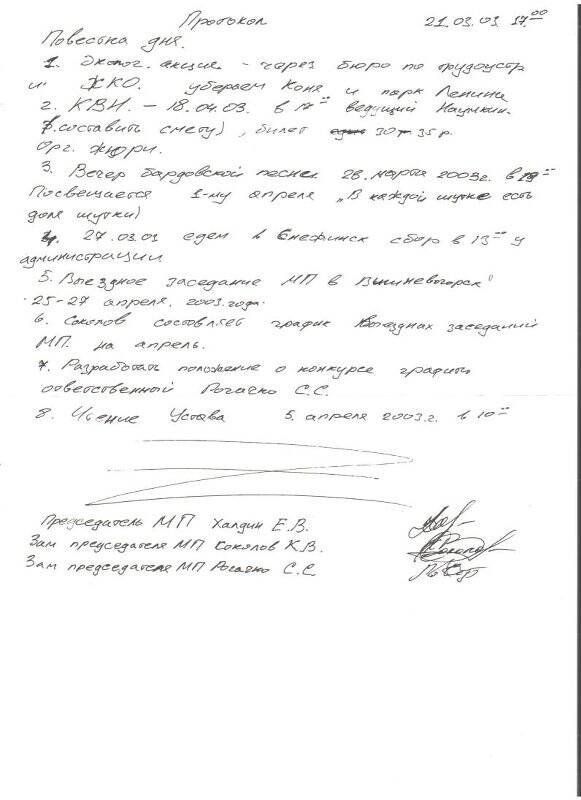 Протокол 21.03.03 17.00
Повестка дня.
1. Эколог. акция - через бюро по трудоустр
и ЖКО. убераем Коня и парк Ленина
2. КВН. - 18.04.03. в 17 ведущий Наумкин.
(составить смету), билет 30 35 р.
Орг. жюри.
3. Вечер бардовской песни 28. марта 2003г. в
Посвещается 1-му апреля „В каждой шутке есть
доля шутки)
4. 27.03.03 едем в Снежинск сбор в 13 00 у
администрации
5. Выездное заседание МП в Вишневогорск"
25-27 апреля. 2003.года.
6. Соколов составляет график Выездных заседаний
МП. на апрель.
7. Разработать положение о конкурсе графити
ответственный Рогачко С.С.
8. Чтение Устава 5. апреля 2003.г. в 10 00
Председатель МП Халдин Е.В.
Зам председателя МП Соколов К.В.
Зам председателя МП Рогачко С.С